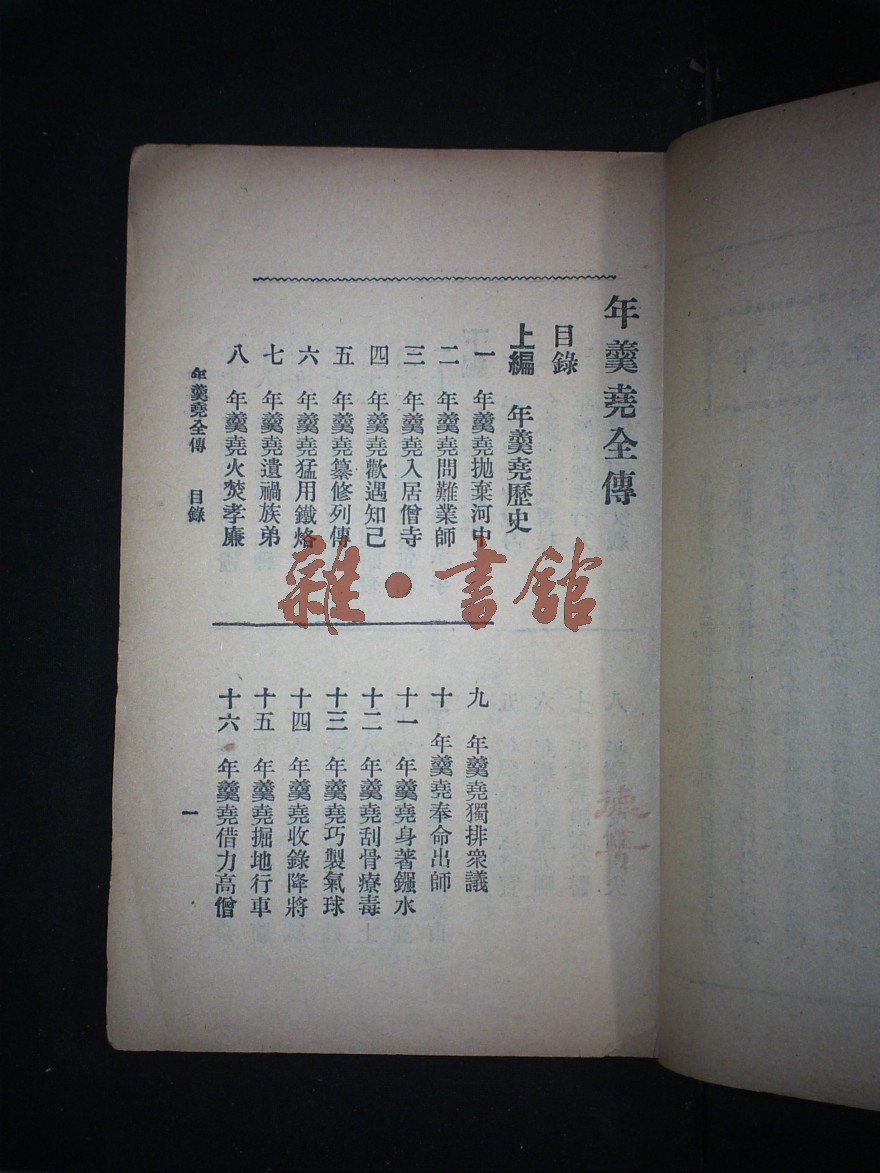 年羹堯全傳
目錄
上編 年羹堯歷史
一 年羹堯抛棄河中
二 年羹堯問難業師
三 年羹堯入居僧寺
四 年羹堯歡遇知己
五 年羹堯纂修列傳
六 年羹堯猛用鐵烙
七 年羹堯遺禍族弟
八 年羹堯火焚孝廉
九 年羹堯獨排衆議
十 年羹堯奉命出師
十一 年羹堯身著鏹水
十二 年羹堯刮骨療毒
十三 年羹堯巧製氣球
十四 年羹堯收錄降將
十五 年羹堯掘地行車
十六 年羹堯借力高僧
年羹堯全傳 目錄
一
雜·書館